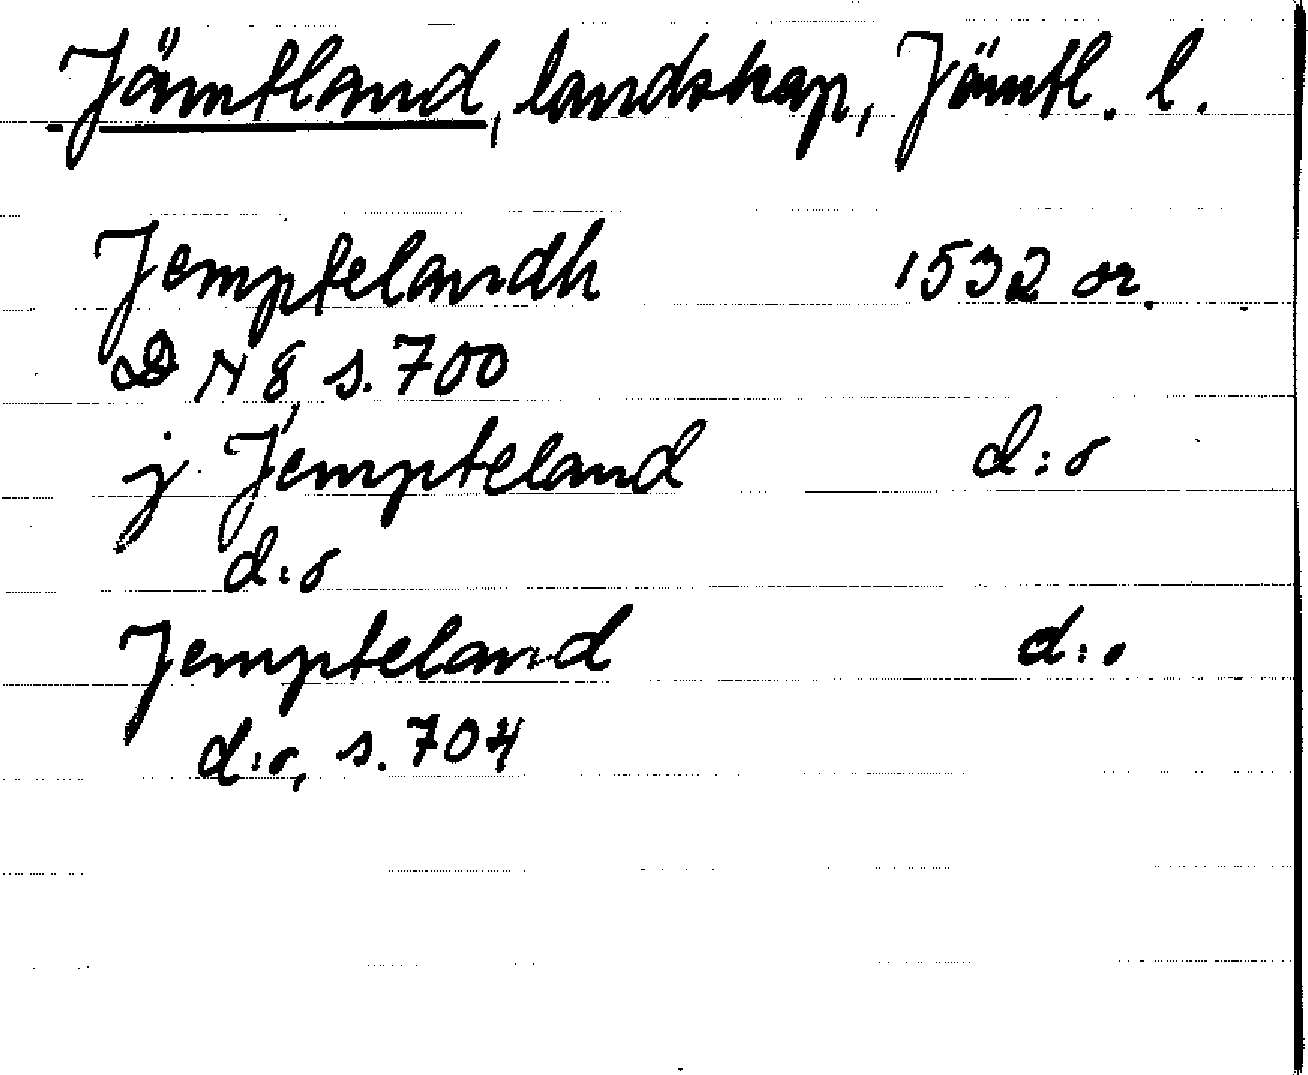 Jämtland, landskap, Jämtl. l.
Jemptelandh 1532 or.
DN 8 s. 700
j Jempteland d:o
d:o
Jempteland d:o
d:o, s. 704